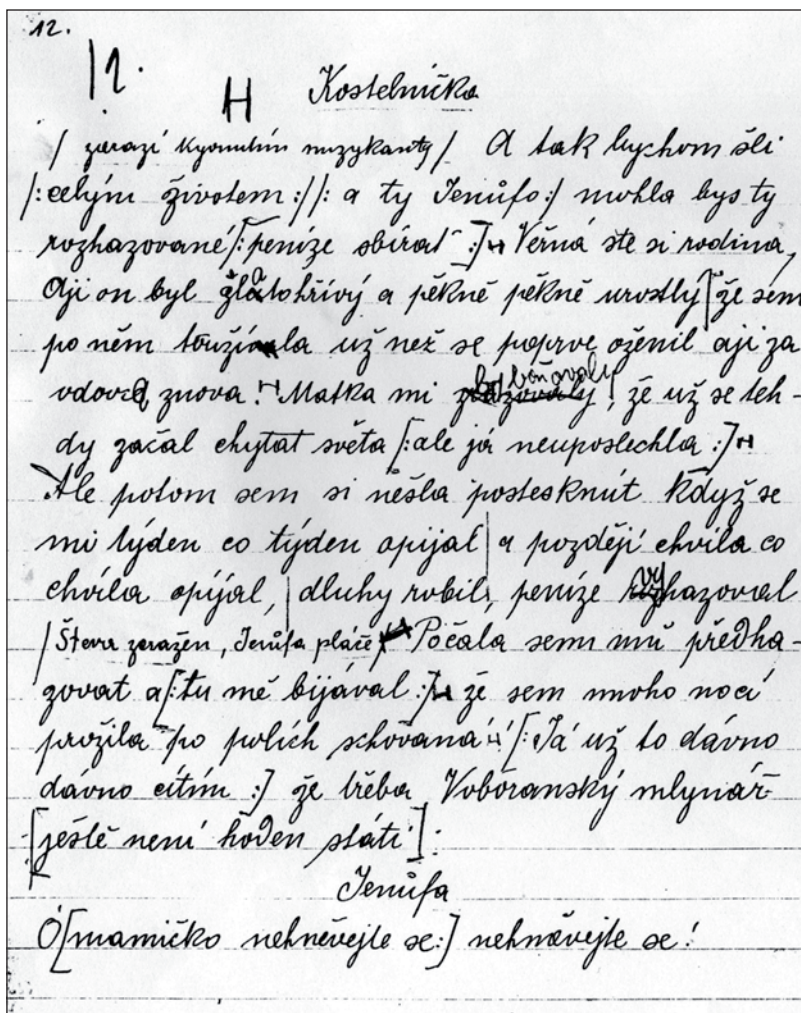 12.
12. H Kostelnička
/ zarazí kynutím muzykanty / A tak bychom šli
/: celým životem :/ /: a ty Jenůfo :/ mohla bys ty
rozhazované [: peníze sbírat :] H Věrná ste si rodina,
Aji on byl zlatohřívý a pěkně pěkně urostlý [ že sem
po něm toužívala už než se poprve oženil aji za
vdovca znova. H Matka mi bohoňovaly, že už se teh-
dy začal chytat světa [: ale já neuposlechla :] H
Ale potom sem si nešla postesknút když se
mi týden co týden opíjal | a později chvíla co
chvíla opíjal, | dluhy robil, peníze vyhazoval
/ Števa zaražen, Jenůfa pláče / H Počala sem mu předha-
zovat a [: tu mě bijával :] H že sem mnoho nocí
prožila po polích schovaná H [: Já už to dávno
dávno cítím :] že třeba Vobóranský mlynář
[ ještě není hoden státi ] :
Jenůfa
Ó [ mamičko nehněvejte se :] nehněvejte se !